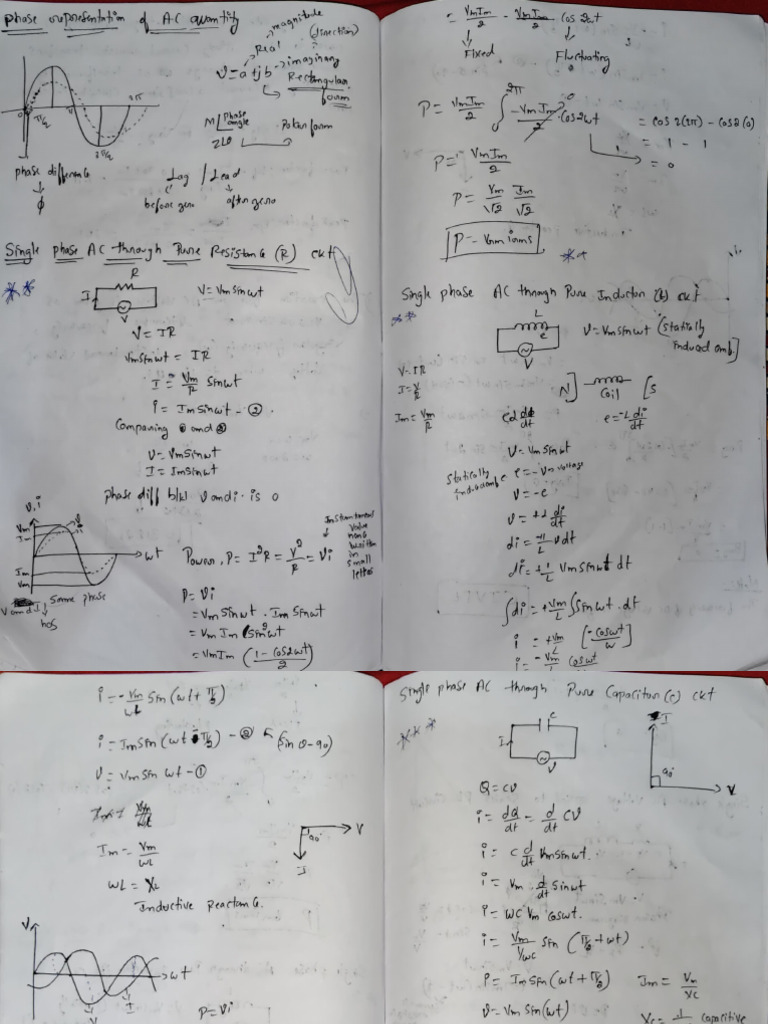 Phase representation of AC quantity
magnitude
(direction)
Real
v = a + jb
imaginary
Rectangular form
M∠Phase angle
Polar form
phase difference
φ
Lag / Lead
before zero
after zero
Single phase AC through Pure Resistance (R) ckt
R
I
V
V = Vm sinωt
V = IR
Vm sinωt = IR
I = Vm/R sinωt
i = Im sinωt - ②
Comparing ① and ②
V = Vm sinωt
I = Im sinωt
phase diff b/w V and i is 0
V, i
Vm
Im
ωt
Im
Vm
Same phase
V and I
has
Instantaneous value
written in small letter
Power, P = I²R = V²/R = Vi
P = Vi
= Vm sinωt . Im sinωt
= Vm Im (sin²ωt
= Vm Im (1 - cos2ωt / 2)
= VmIm/2 - VmIm/2 cos 2ωt
Fixed
Fluctuating
P = VmIm/2 ∫ 0 2π - VmIm/2 cos2ωt
= cos 2(2π) - cos2(0)
= 1 - 1
= 0
P = VmIm/2
P = Vm/√2 Im/√2
P = Vrms irms
Single phase AC through Pure Inductor (L) ckt
L
e
V
V = Vm sinωt (Statically induced emf.)
V = IR
I = V/R
Im = Vm/R
N] Coil [S
e α dϕ/dt
e = -L di/dt
V = Vm sinωt
Statically induced emf e = -ve voltage
V = -e
V = +L di/dt
di = 1/L V dt
di = +1/L Vm sinωt dt
∫di = +Vm/L ∫sinωt . dt
i = +Vm/L [-cosωt/ω]
i = -Vm/L cosωt
i = -Vm/ωL sin(ωt + π/2)
i = Im sin(ωt - π/2) - ② (sin θ-90)
V = Vm sin ωt - ①
Im = Vm/ωL
ωL = XL
Inductive Reactance.
90°
V
I
V
ωt
I
V
P = Vi
Single phase AC through Pure Capacitor (C) ckt
C
I
V
I
90°
V
Q = CV
i = dQ/dt = d/dt CV
i = C d/dt Vm sinωt.
i = Vm d/dt sinωt
i = ωC Vm cosωt.
i = Vm/1/ωC sin (π/2 + ωt)
i = Im sin(ωt + π/2)
Im = Vm/XC
V = Vm sin(ωt)
capacitive